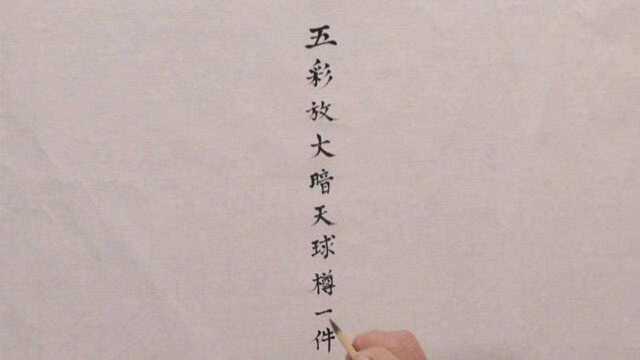 五彩放大暗天球樽一件